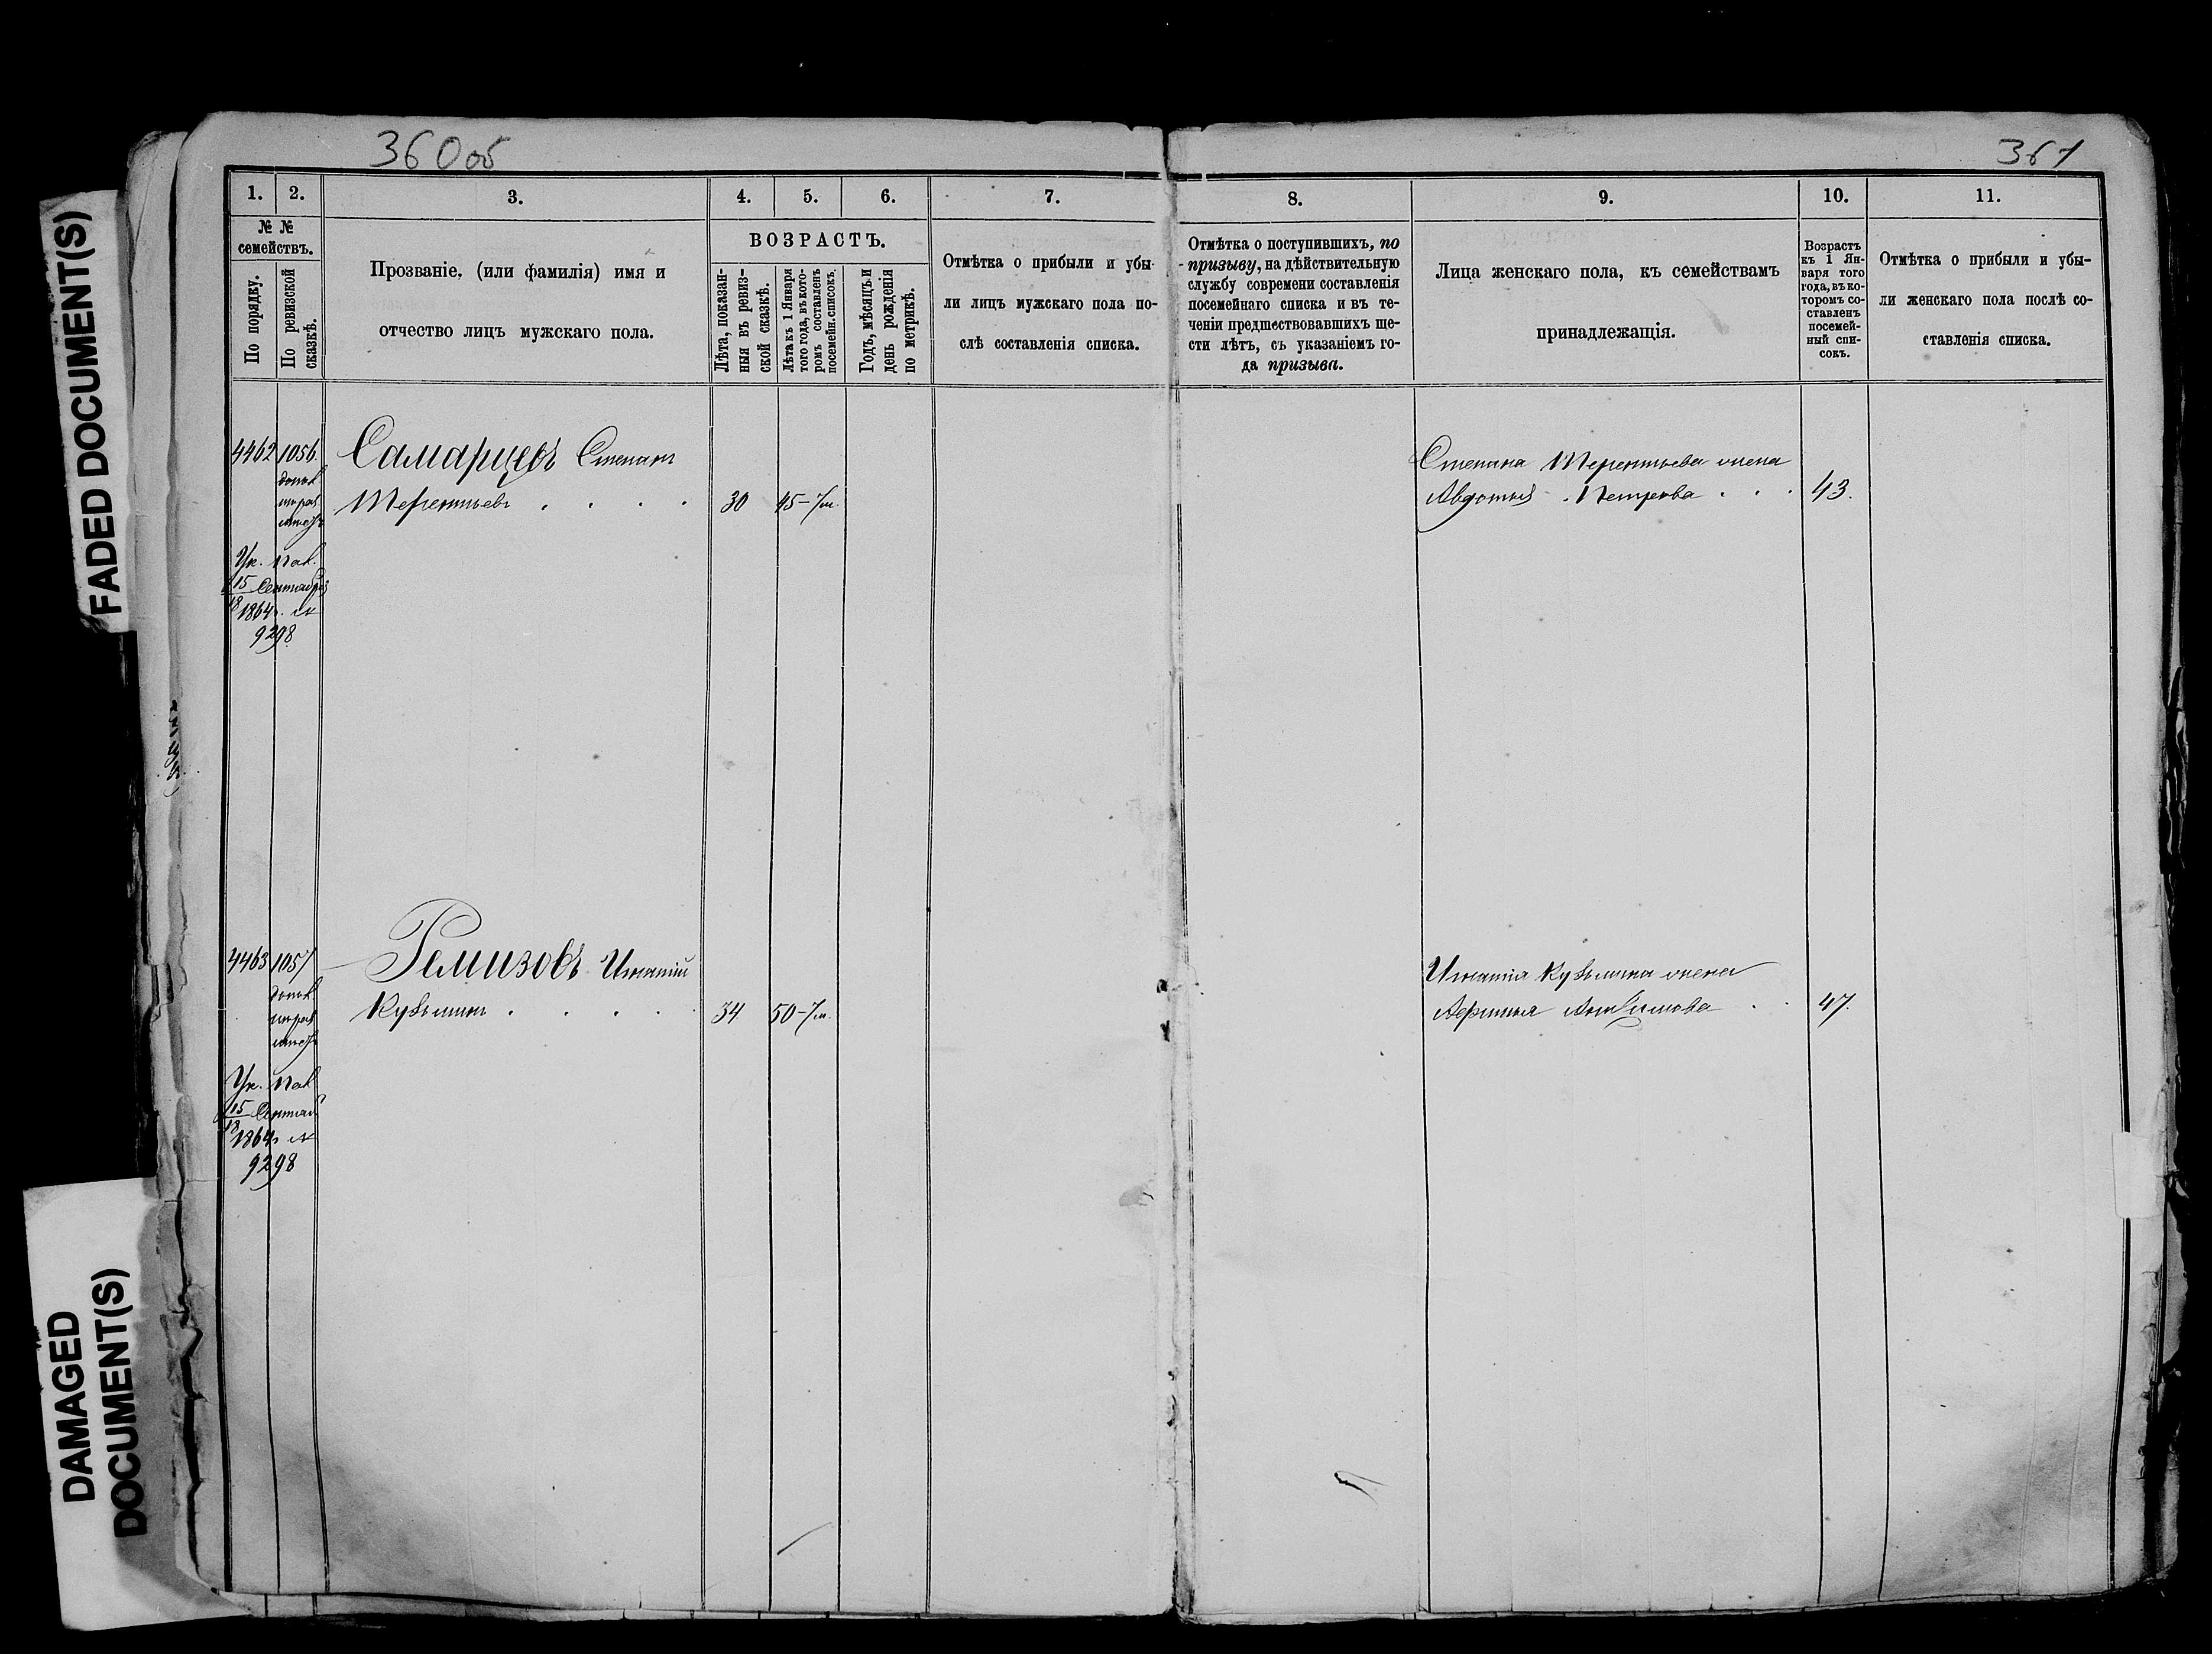 FADED DOCUMENT(S)
DAMAGED
DOCUMENT(S)
360об
361
1. 2. 3. 4. 5. 6. 7.
№ №
семействъ.
По порядку.
По ревизской
сказкѣ.
Прозваніе, (или фамилія) имя и
отчество лицъ мужскаго пола.
ВОЗРАСТЪ.
Лѣта, показан-
ныя въ ревиз-
ской сказкѣ.
Лѣта къ 1 Января
того года, въ кото-
ромъ составленъ
посемейн. списокъ.
Годъ, мѣсяцъ и
день рожденія
по метрикѣ.
Отмѣтка о прибыли и убы-
ли лицъ мужскаго пола по-
слѣ составленія списка.
8. 9. 10. 11.
Отмѣтка о поступившихъ, по
призыву, на дѣйствительную
службу современи составленія
посемейнаго списка и въ те-
ченіи предшествовавшихъ ше-
сти лѣтъ, съ указаніемъ го-
да призыва.
Лица женскаго пола, къ семействамъ
принадлежащія.
Возрастъ
къ 1 Ян-
варя того
года, въ ко-
торомъ со-
ставленъ
посемей-
ный спи-
сокъ.
Отмѣтка о прибыли и убы-
ли женскаго пола послѣ со-
ставленія списка.
4462 1056. Самарцевъ Степанъ
Терентьевъ . . . . 30 45-7м.
Ук. Пал.
15 Сентября
18 1864
9298
Степана Терентьева жена
Авдотья Петрова . . . 43.
4463 1057 Ремизовъ Игнатій
Кузьминъ . . . . 34 50-7м.
Ук. Пал
15
18 1864
9298
Игнатія Кузьмина жена
Афимья . . 47.